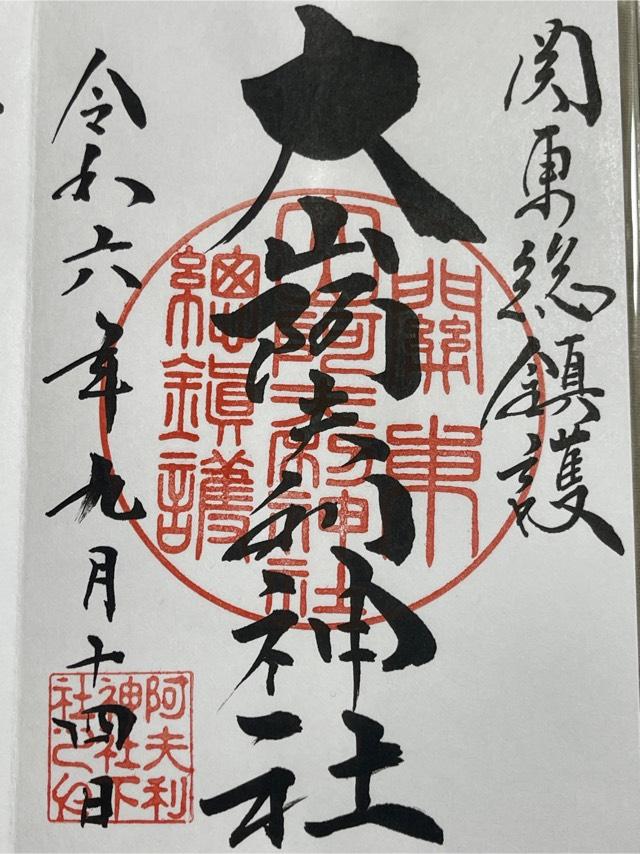 関東総鎮護
大山阿夫利神社
令和六年九月十四日
關東
大山阿夫利神社
總鎮護
阿夫利
神社下
社之印